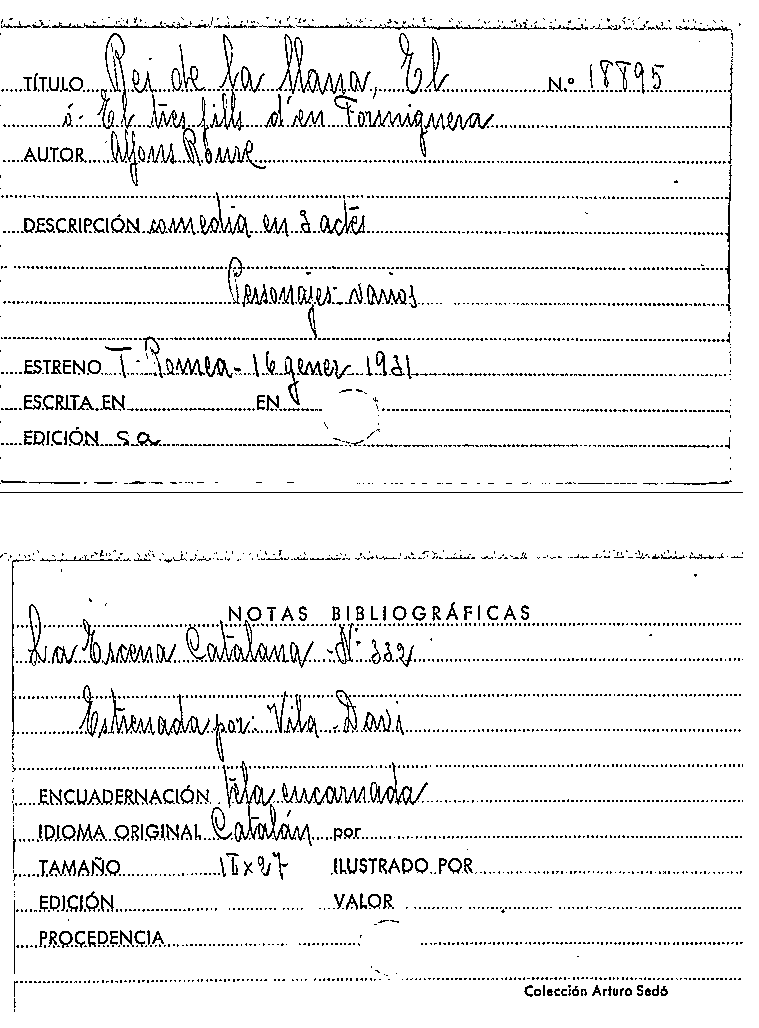 TÍTULO Rei de la llana, El N.º 18895
ó- El tres fills d'en Formiguera
AUTOR Alfons Roure
DESCRIPCIÓN comedia en 3 actes
Personajes varios
ESTRENO T. Romea - 16 gener 1931
ESCRITA EN EN
EDICIÓN s.a
NOTAS BIBLIOGRÁFICAS
La Escena Catalana - Nº 332
Estrenada por: Vila - Davi
ENCUADERNACIÓN tela encarnada
IDIOMA ORIGINAL Catalán por
TAMAÑO ILUSTRADO POR
EDICIÓN VALOR
PROCEDENCIA
Colección Arturo Sedó